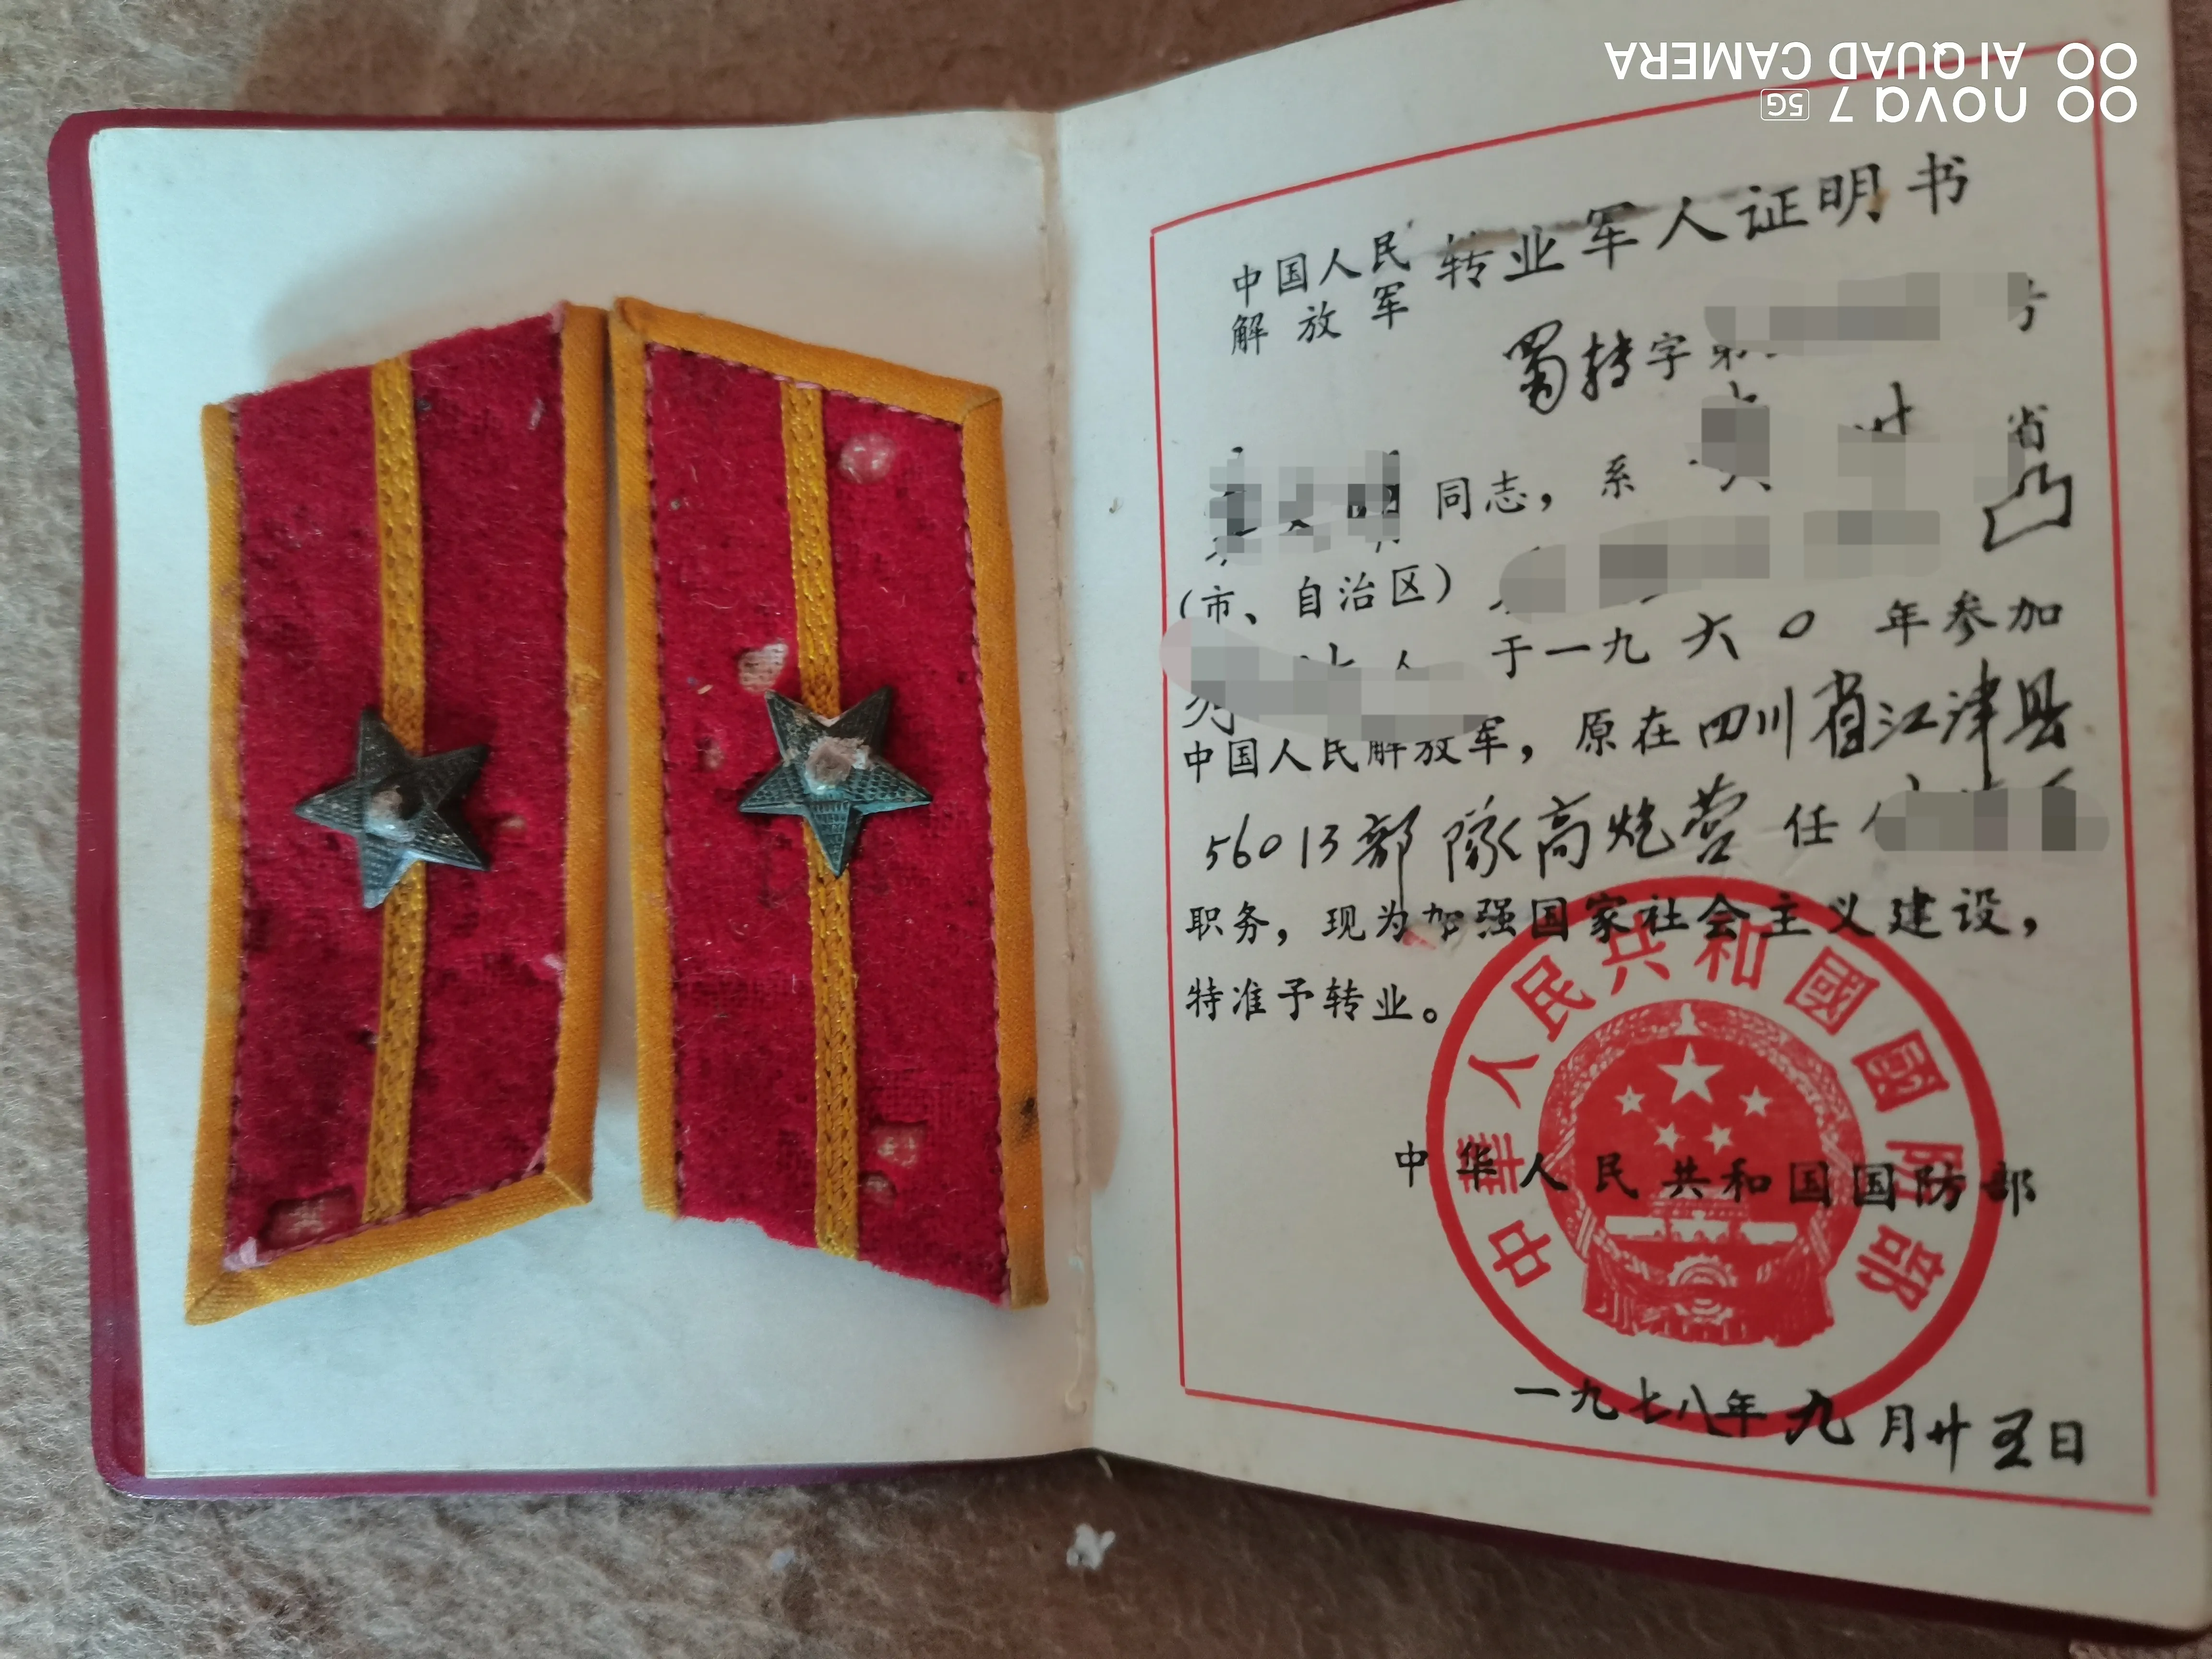 nova 7 5G
AI QUAD CAMERA
中国人民
解放军
转业军人证明书
蜀转字第
省
同志，系
（市、自治区）
人 于一九六0年参加
中国人民解放军，原在四川省江津县
56013部队高炮营任
职务，现为加强国家社会主义建设，
特准予转业。
中華人民共和國國防部
中华人民共和国国防部
一九七八年九月廿五日